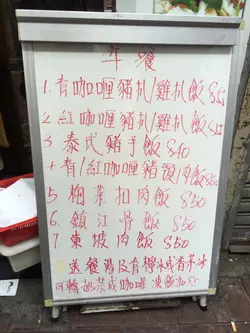 午餐
1. 青咖喱豬扒/雞扒飯 $50
2. 紅咖喱豬扒/雞扒飯 $50
3 泰式豬手飯 $40
4 青/紅咖喱豬頸肉飯
5. 梅菜扣肉飯 $50
6. 鎮江骨飯 $50
7 東坡肉飯 $50
送餐湯及有檸水或香茅冰
可轉奶茶或咖啡 凍飲加